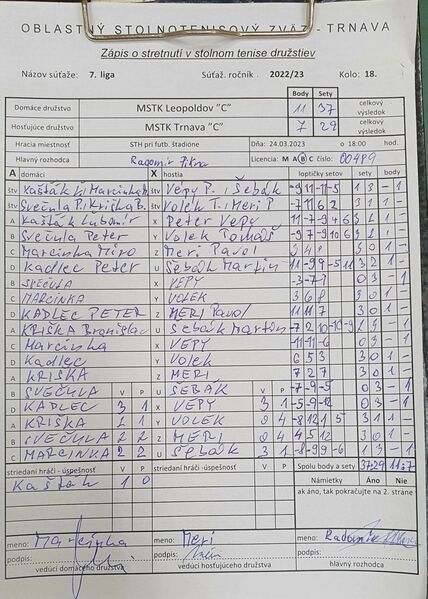 OBLASTNÝ STOLNOTENISOVÝ ZVÄZ - TRNAVA
Zápis o stretnutí v stolnom tenise družstiev
Názov súťaže: 7. liga Súťaž. ročník 2022/23 Kolo: 18.
Body Sety
Domáce družstvo MSTK Leopoldov "C" 11 37 celkový výsledok
Hosťujúce družstvo MSTK Trnava "C" 7 29 celkový výsledok
Hracia miestnosť STH pri futb. štadióne Dňa: 24.03.2023 o 18:00 hod.
Hlavný rozhodca Radomír Licencia: M A B C číslo: 00489
A domáci X hostia loptičky setov sety body
štv Kašták Ľ. Marcinka M. štv Vépy P. Šebák -9 11 -11 -5 1 3 - 1
štv Svečula P. Kriška B. štv Volek T. Meri P -7 11 6 2 3 1 1 -
A Kašták Ľubomír X Peter Vépy 11 -7 9 4
B Svečula Peter Y Volek Tomáš -9 7 -9 10 6 3 2 1 -
C Marcinka Miro Z Meri Pavol 3 4 8 3 0 1 -
D Kadlec Peter U Šebák Martin
B SVEČULA X VÉPY -3 -7 7 0 3 - 1
C MARCINKA Y VOLEK 3 6 8 3 0 1 -
D KADLEC PETER Z MERI Pavol 11 11 7 3 0 1 -
A KRIŠKA Bronislav U Šebák Martin -7 2 10 -10 -9 2 3 - 1
C Marcinka X VÉPY -11 -11 -6 0 3 - 1
D Kadlec Y Volek 6 5 3 3 0 1 -
A KRIŠKA Z MERI 7 2 7 3 0 1 -
B SVEČULA V P U ŠEBÁK V P -7 -9 -5 0 3 - 1
D KADLEC 3 1 X VÉPY 3 1 -5 -9 -12 0 3 - 1
A KRIŠKA 2 1 Y VOLEK 0 4 -8 12 1 5 3 1 1 -
B SVEČULA 2 2 Z MERI 0 4 4 5 12 3 0 1 -
C MARCINKA 2 2 U ŠEBÁK 3 1 -8 -9 9 -6 1 3 - 1
striedaní hráči - úspešnosť V P striedaní hráči - úspešnosť V P Spolu body a sety 37:29 11:7
Kašták 1 0 Námietky Áno Nie
ak áno, tak pokračujte na 2. strane
meno: Marcinka meno: Meri meno: Radomír
podpis: podpis: podpis:
vedúci domáceho družstva vedúci hosťujúceho družstva hlavný rozhodca